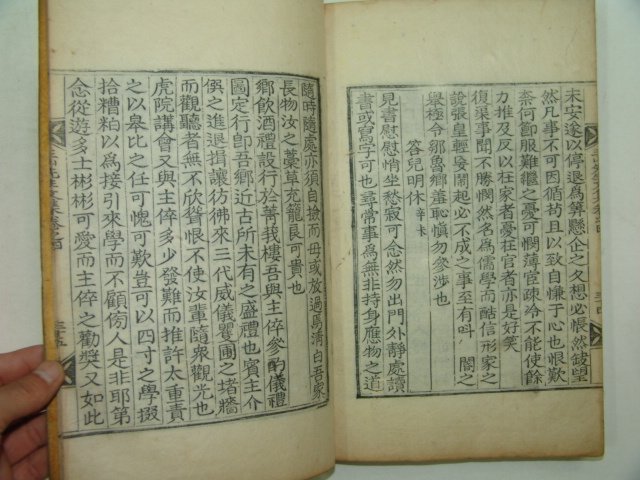 未安遂以停退為算懸企之久想必悵然缺望
然凡事不可因循苟且以致自慊于心也恨歎
柰何鄙服難繼之憂可憫薄宦疎冷不能使餘
力推及反以在家者憂在官者亦是好笑
復渠事聞不勝憫然名為儒學而酷信形家之
說張皇輕妄鬧起必不成之事至有叫閤之
舉極令鄒魯鄉羞恥愼勿參涉也
答兒明休 辛卡
見書慰慰悄坐愁寂可念然勿出門外靜處讀
書或寫字可也尋常事為無非持身應物之道
隨時隨處亦須自撿而毋或放過為淸白吾家
長物汝之藁草充籠良可貴也
鄉飲酒禮設行於菁莪樓吾與主倅參酌儀禮
圖定行卽吾鄉近古所未有之盛禮也賓主介
僎之進退揖讓彷彿來三代威儀矍圃之堵牆
而觀聽者無不欣聳恨不使汝輩隨衆觀光也
虎院講會又與主倅多少發難而推許太重責
之以皐比之任可愧可歎豈可以四寸之學掇
拾糟粕以為接引來學而不顧傍人是非耶第
念從遊多士彬彬可愛而主倅之勸奬又如此